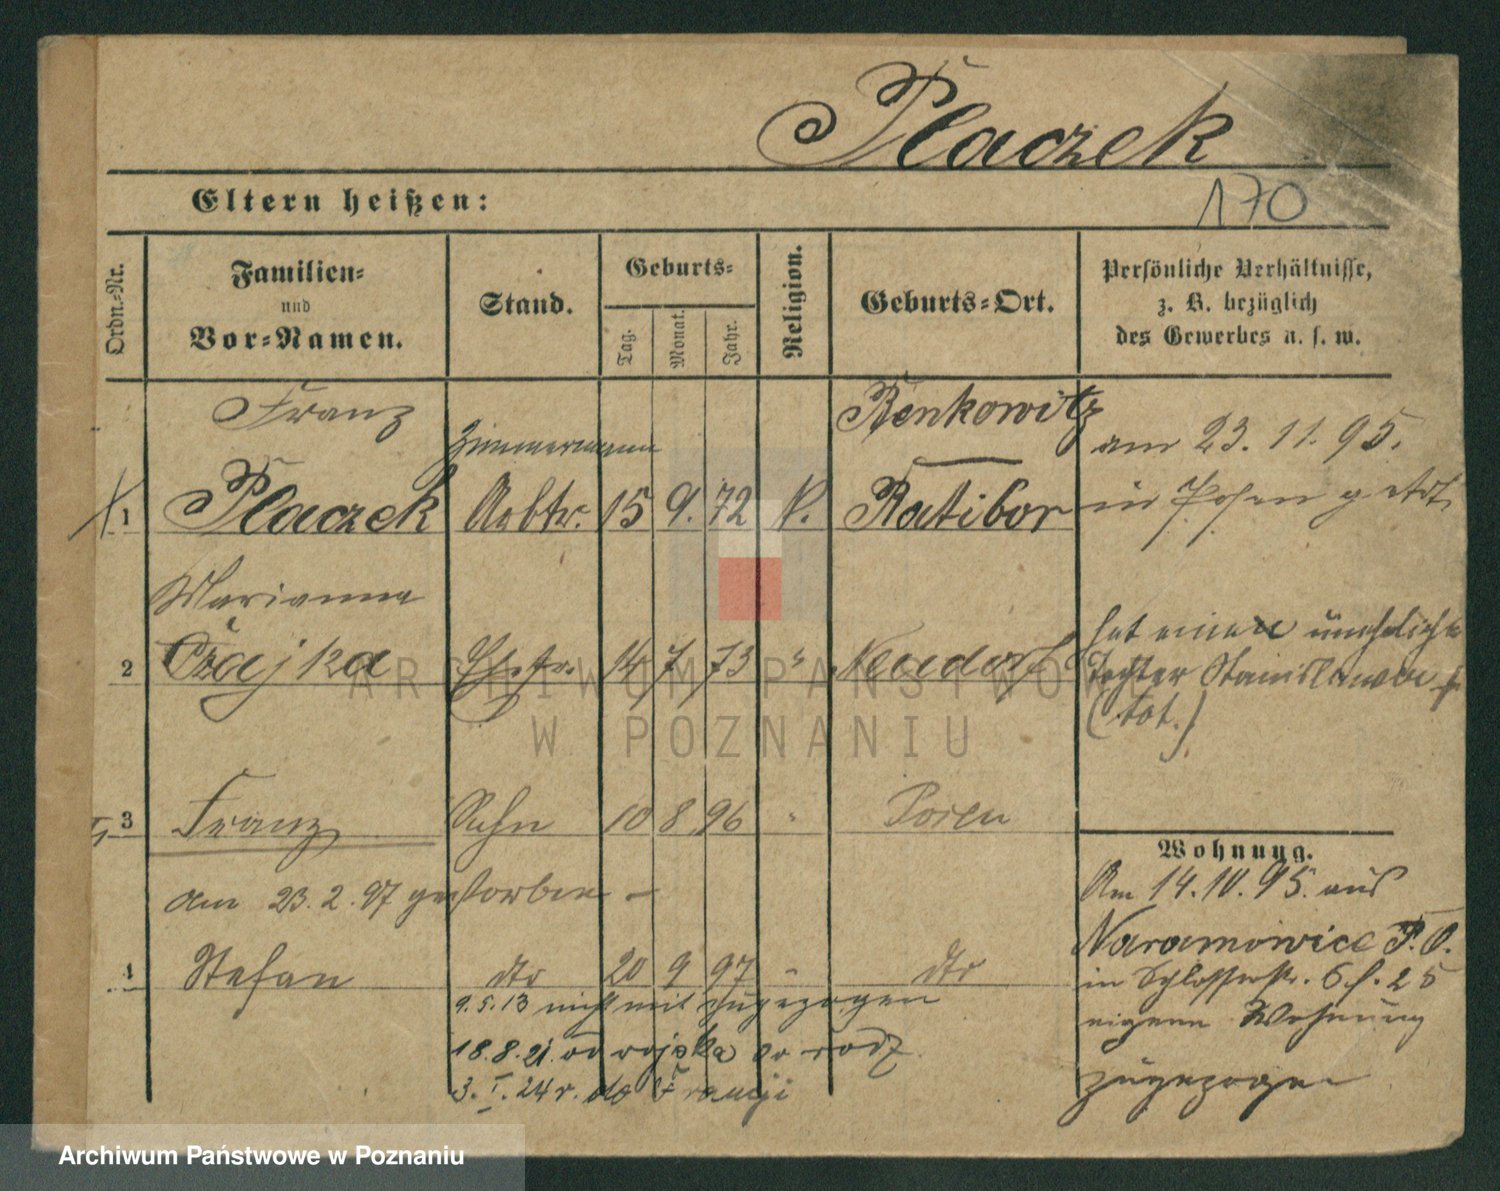 Placzek
170
Eltern heißen:
Ordn.-Nr.
Familien-
und
Vor-Namen.
Stand.
Geburts-
Tag.
Monat.
Jahr.
Religion.
Geburts-Ort.
Persönliche Verhältnisse,
z. B. bezüglich
des Gewerbes u. s. w.
Franz
Zimmermann
Benkowitz
am 23. 11. 95.
1 Placzek Arbtr. 15 9. 72 k. Ratibor
in Posen getr.
Marianna
2 Czajka Ehefr. 14 7 73 " Neudorf
hat eine uneheliche
Tochter Stanislawa
(tot.)
3 Franz Sohn 10 8 96 " Posen
Wohnung.
am 23. 2. 97 gestorben –
Am 14. 10. 95. aus
Naramowice P. O.
4 Stefan dto 20 9 97 " dto
in Schlosserstr. 6 f. 25
9.5.13 nicht mit zugezogen
eigene Wohnung
18.8.21. od wojska do rodz.
3. I. 24 r. do Francji
zugezogen
ARCHIWUM PAŃSTWOWE
W POZNANIU
Archiwum Państwowe w Poznaniu